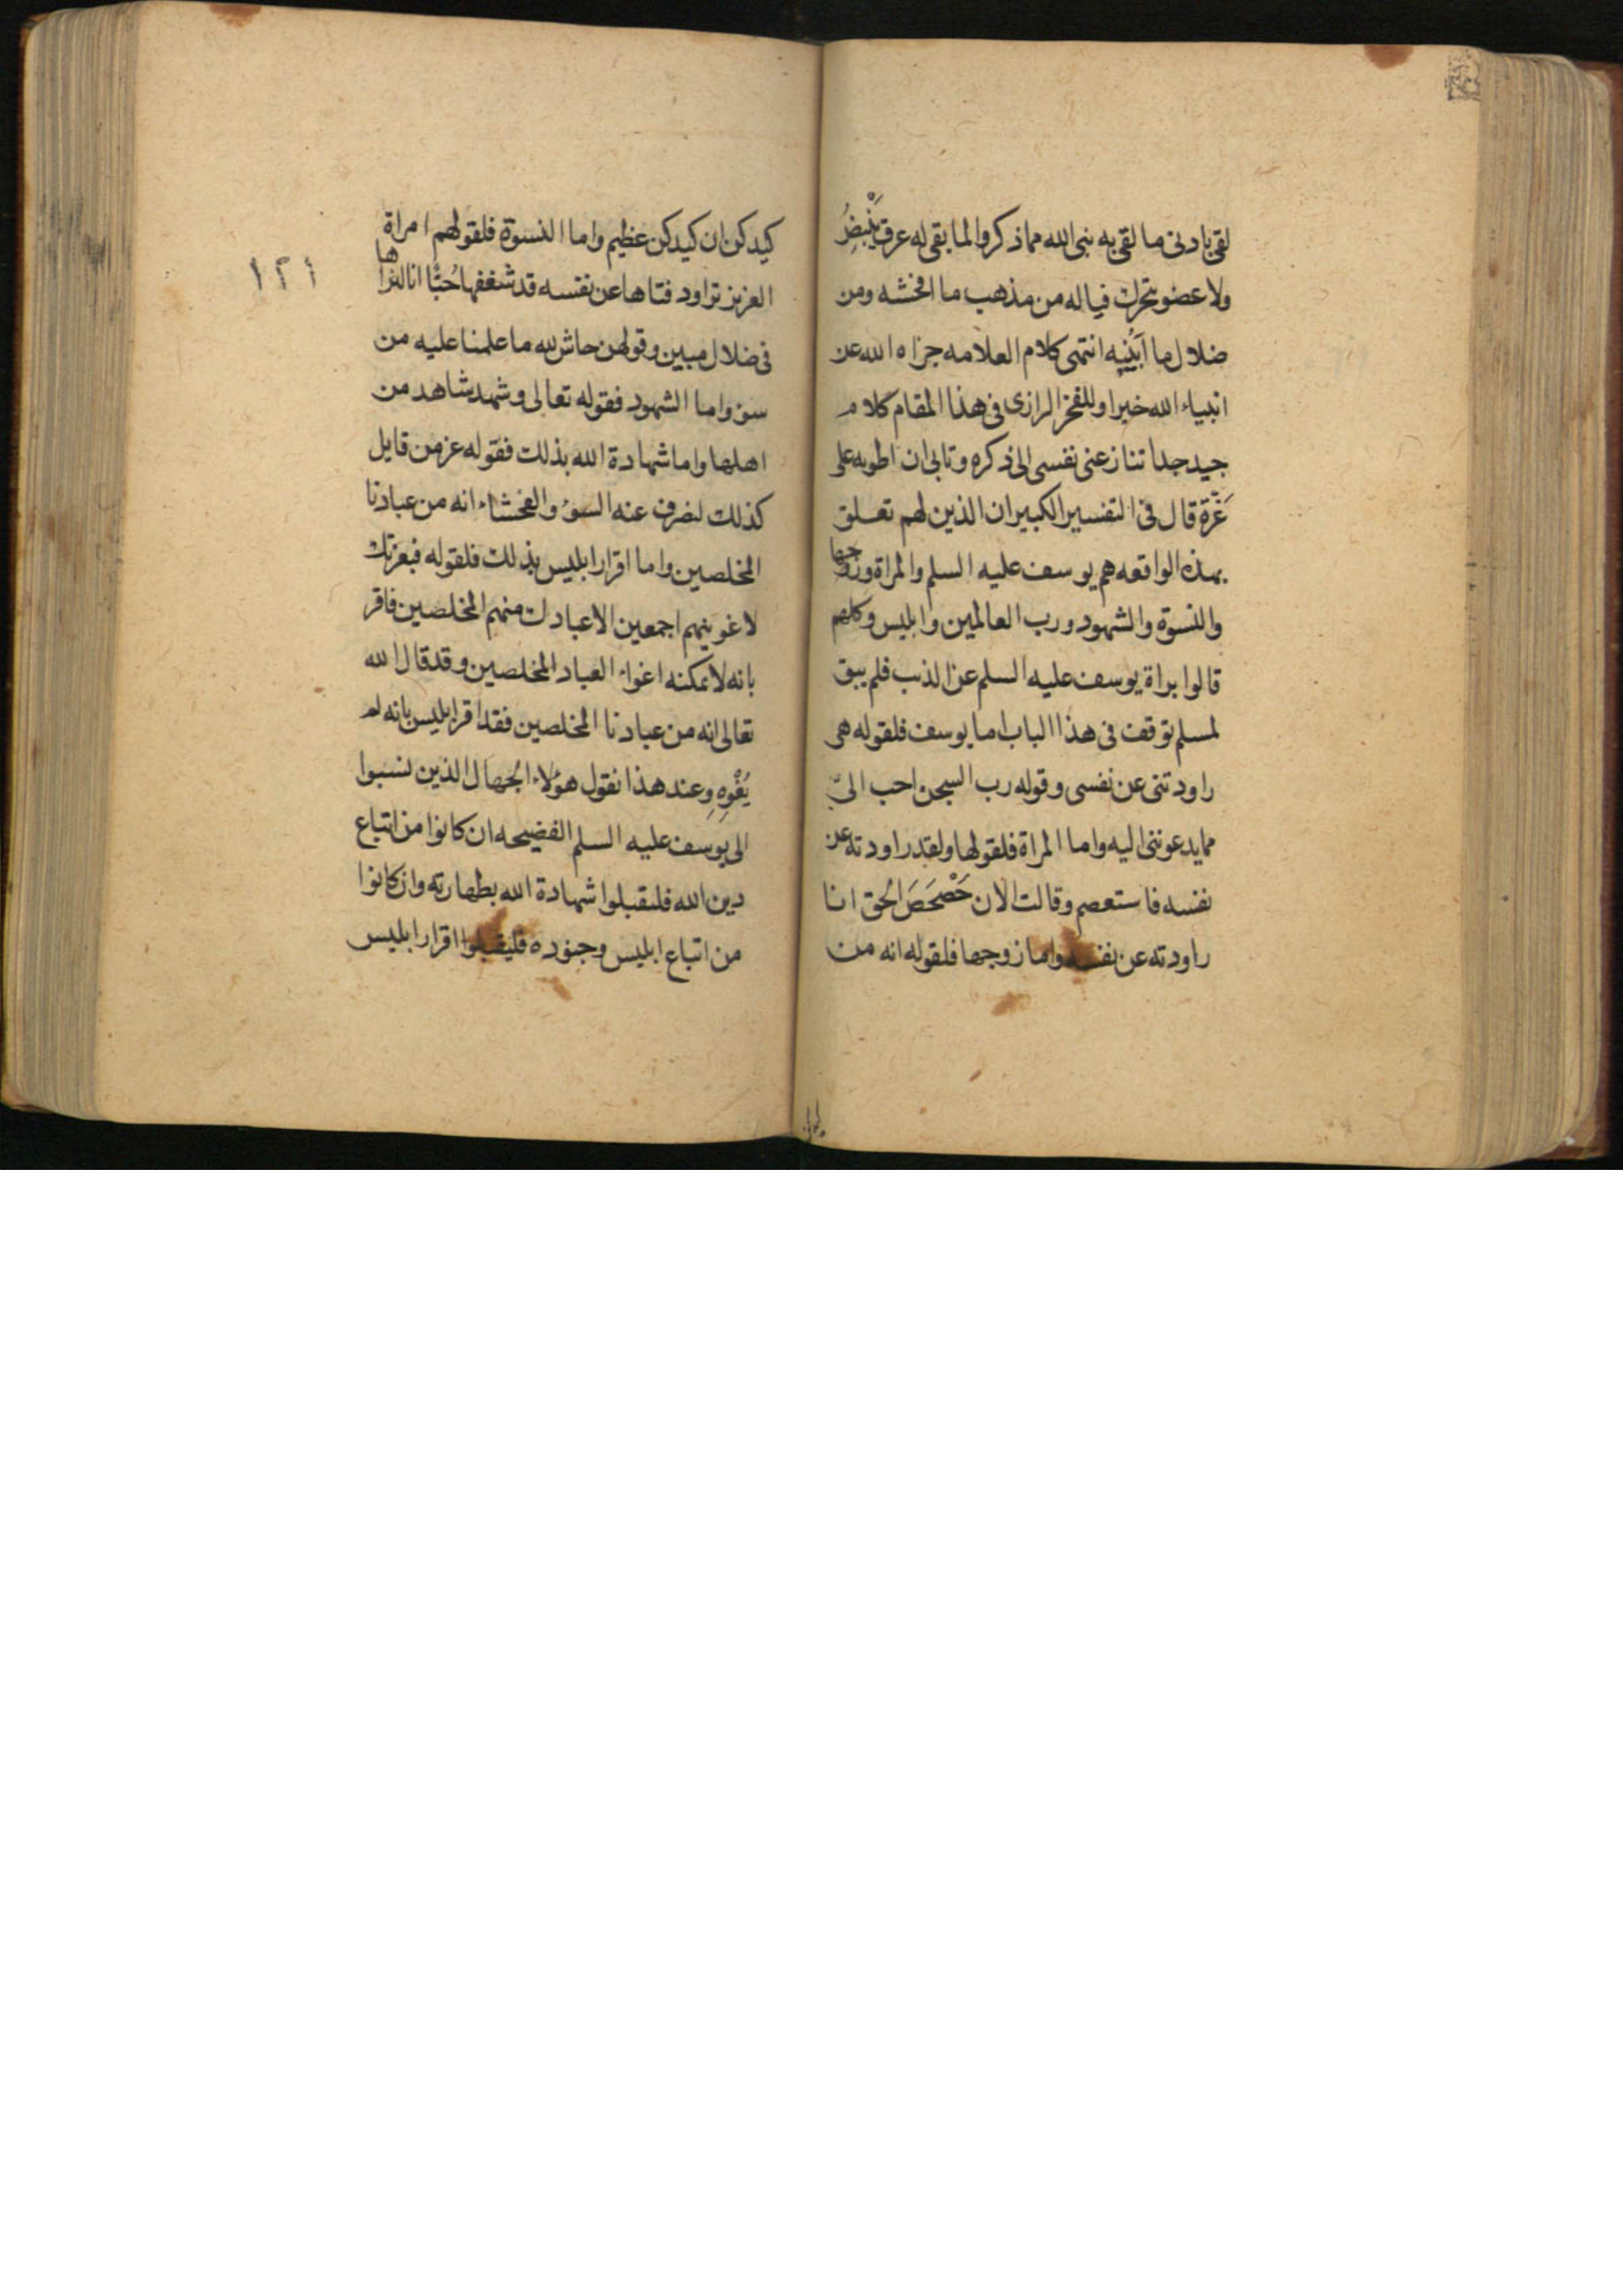 لقى بادنى ما لقى به نبى الله مما ذكروا لما بقى له عرق يَنْبِضُ
ولا عضو يتحرك فياله من مذهب ما افحشه ومن
ضلال ما اَبْيَنه انتهى كلام العلامه جزاه الله عن
انبياء الله خيرا وللفخر الرازى فى هذا المقام كلام
جيد جدا تنازعنى نفسى الى ذكره وتابى ان اطويه على
غَرّة قال فى التفسير الكبير ان الذين لهم تعلق
بهذه الواقعه هم يوسف عليه السلم والمراة وزوجها
والنسوة والشهود ورب العالمين وابليس وكلهم
قالوا براة يوسف عليه السلم عن الذنب فلم يبق
لمسلم توقف فى هذا الباب اما يوسف فلقوله هى
راودتنى عن نفسى وقوله رب السجن احب الىّ
مما يدعوننى اليه واما المراة فلقولها ولقد راودته عن
نفسه فاستعصم وقالت الان حَصْحَصَ الحق انا
راودته عن نفسه واما زوجها فلقوله انه من
كيدكن ان كيدكن عظيم واما النسوة فلقولهم امراة
العزيز تراود فتاها عن نفسه قد شغفها حُبًّا انا لنراها
فى ضلال مبين وقولهن حاش لله ما علمنا عليه من
سوء واما الشهود فقوله تعالى وشهد شاهد من
اهلها واما شهادة الله بذلك فقوله عز من قايل
كذلك لنصرف عنه السوء والفحشاء انه من عبادنا
المخلصين واما اقرار ابليس بذلك فلقوله فبعزتك
لاغوينهم اجمعين الا عبادك منهم المخلصين فاقر
بانه لا يمكنه اغواء العباد المخلصين وقد قال الله
تعالى انه من عبادنا المخلصين فقد اقر ابليس بانه لم
يُغْوِهِ وعند هذا نقول هؤلاء الجهال الذين نسبوا
الى يوسف عليه السلم الفضيحه ان كانوا من اتباع
دين الله فليقبلوا شهادة الله بطهارته وان كانوا
من اتباع ابليس وجنوده فليقبلوا اقرار ابليس
١٢١